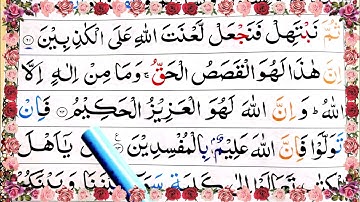 ثُمَّ نَبْتَهِلْ فَنَجْعَلْ لَّعْنَتَ اللّٰهِ عَلَى الْكٰذِبِيْنَ ﴿۶۱﴾
اِنَّ هٰذَا لَهُوَ الْقَصَصُ الْحَقُّ ۚ وَمَا مِنْ اِلٰهٍ اِلَّا
اللّٰهُ ؕ وَ اِنَّ اللّٰهَ لَهُوَ الْعَزِيْزُ الْحَكِيْمُ ﴿۶۲﴾ فَاِنْ
تَوَلَّوْا فَاِنَّ اللّٰهَ عَلِيْمٌۢ بِالْمُفْسِدِيْنَ ﴿۶۳﴾ يٰۤاَهْلَ